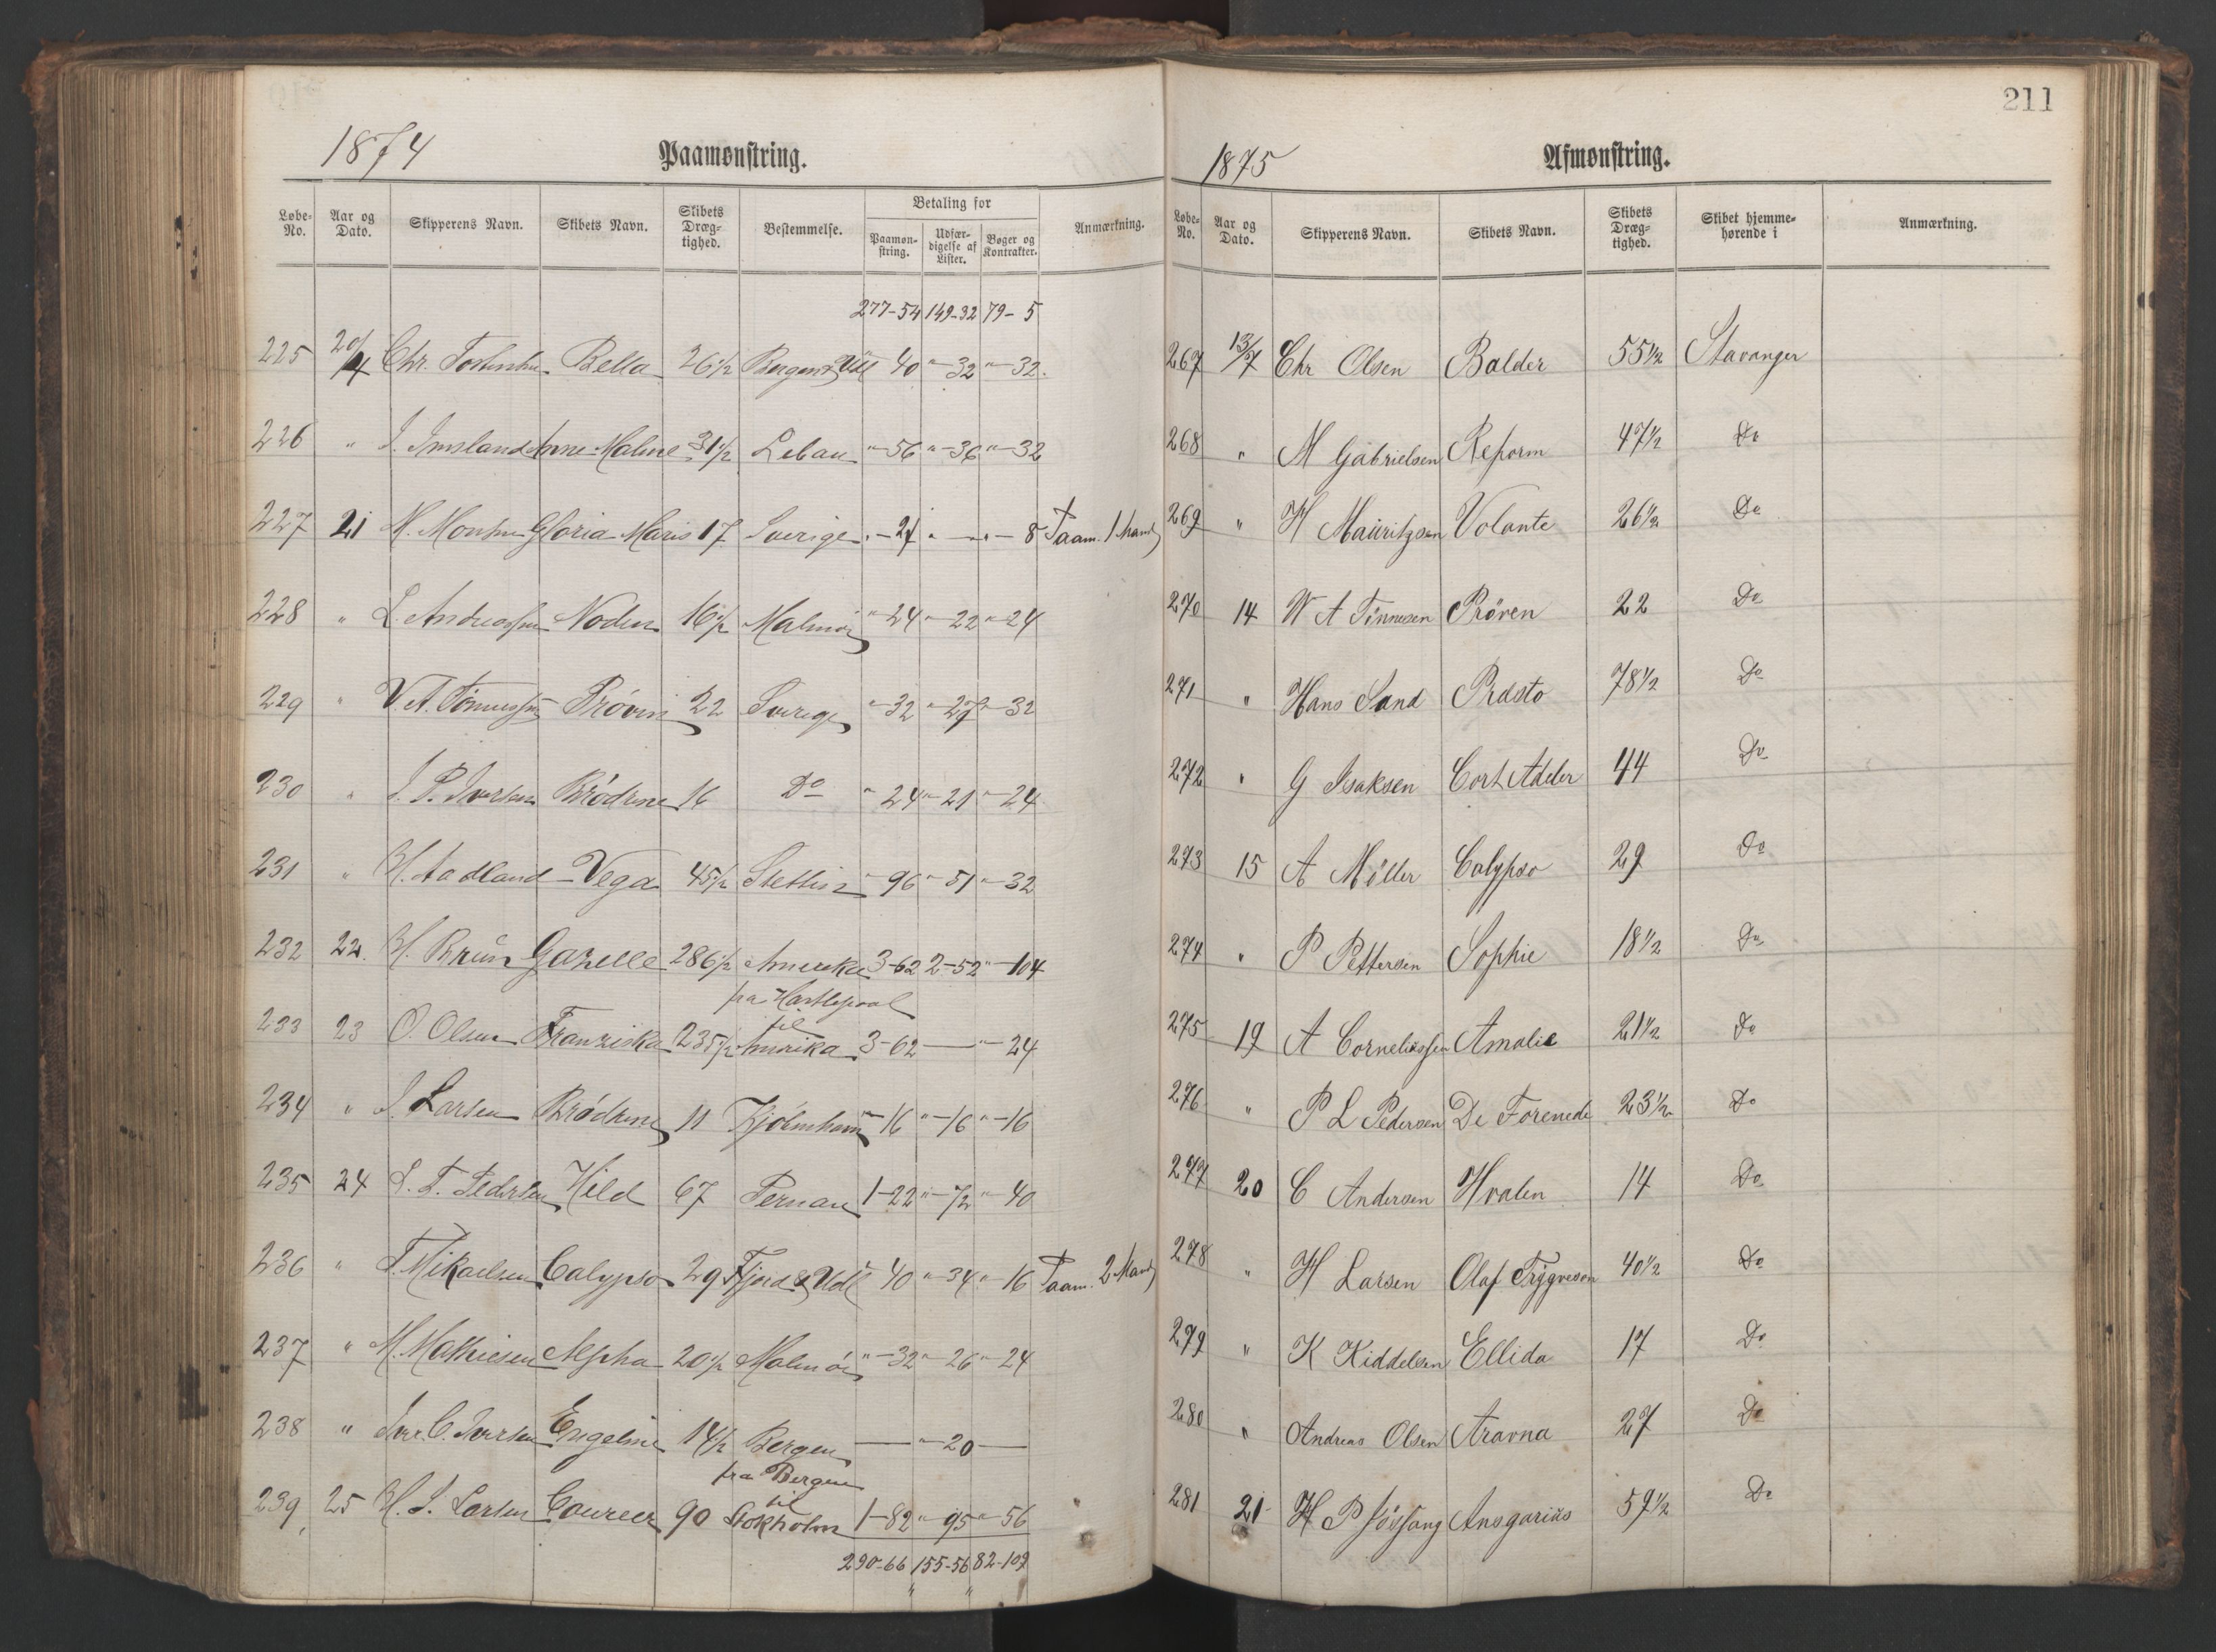 1874 Paamønstring.
Løbe-No. Aar og Dato. Skipperens Navn. Skibets Navn. Skibets Dræg-tighed. Bestemmelse. Betaling for Paamøn-string. Udfær-digelse af Lister. Bøger og Kontrakter. Anmærkning.
277-54 149-32 79-5
225 20/4 Chr. Bella 26 1/2 Bergen & Udl 40 "-32 "-32
226 " J. Imsland Anne Maline 31 1/2 Lebau "-56 "-36 "-32
227 21 M. Gloria Maris 17 Sverige "-24 " — "-8 Paam. 1 Mand
228 " L. Andreassen Noden 16 1/2 Malmö "-24 "-22 "-24
229 " V. A. Tönnessen Pröven 22 Sverige "-32 "-27 "-32
230 " J. P. Iversen Brödrene 16 Do "-24 "-21 "-24
231 " H. Aadland Vega 45 1/2 Stettin "-96 "-51 "-32
232 22. H. Bruun Gazelle 286 1/2 Amerika 3-62 2-52 "-104
233 23 O. Olsen Franziska 235 1/2 fra Hartlepool til Amerika 3-62 — "-24
234 " J. Larsen Brödrene 11 "-16 "-16 "-16
235 24 L. T. Pedersen Hild 67 Pernau 1-22 "-72 "-40
236 " T. Mikaelsen Calypso 29 Fjord & Udl 40 "-34 "-16 Paam. 2 Mand
237 " M. Mathiesen Alpha 20 1/2 Malmö "-32 "-26 "-24
238 " Iver C. Iversen Engeline 14 1/2 Bergen — "-20 —
239 25 H. S. Larsen Coureer 90 fra Bergen til Stokholm 1-82 "-95 "-56
290-66 155-56 82-109
211
1875 Afmønstring.
Løbe-No. Aar og Dato. Skipperens Navn. Skibets Navn. Skibets Dræg-tighed. Skibet hjemme-hørende i Anmærkning.
267 13/7 Chr Olsen Balder 55 1/2 Stavanger
268 " M Gabrielsen Reform 47 1/2 Do
269 " H Mauritzsen Volante 26 1/2 Do
270 14 W A Tönnesen Pröven 22 Do
271 " Hans Sand Prdsto 78 1/2 Do
272 " G Isaksen Cort Adeler 44 Do
273 15 A Möller Calypso 29 Do
274 " P Pettersen Sophie 18 1/2 Do
275 19 A Corneliussen Amalie 21 1/2 Do
276 " P L Pedersen De Forenede 23 1/2 Do
277 20 C Andersen Hvalen 14 Do
278 " H Larsen Olaf Trygvesen 40 1/2 Do
279 " K Kiddelsen Ellida 17 Do
280 " Andreas Olsen Aravna 27 Do
281 21 H P Jössang Ansgarius 57 1/2 Do